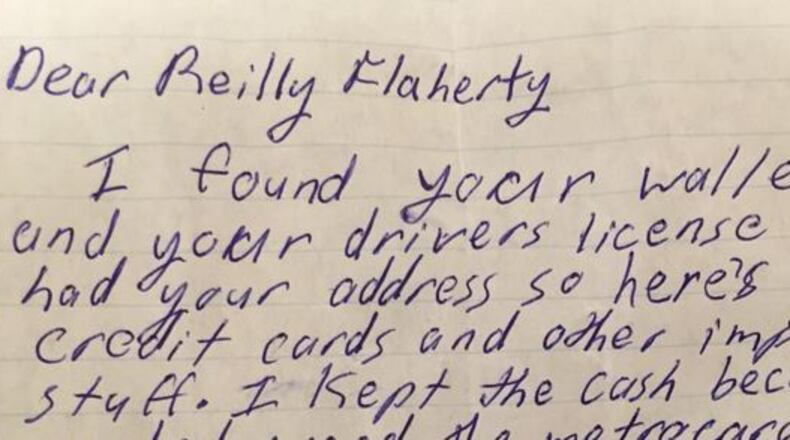 Dear Reilly Flaherty
I found your walle
and your drivers license
had your address so here's
credit cards and other imp
stuff. I kept the cash bec
the metrocard